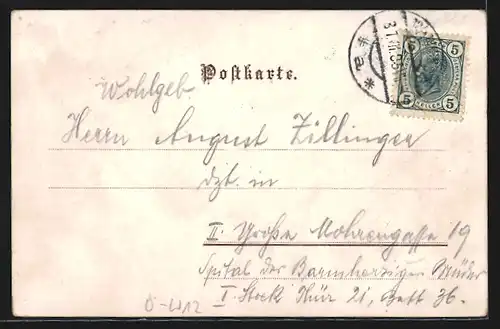 Postkarte.
Wohlgeb.
Herrn August Zillinger
dzt. in
II. Große Mohrengasse 19
Spital der Barmherzigen Brüder
I. Stock Thür 21, Bett 36.
Ö-W12
5 5
5 HELLER 5